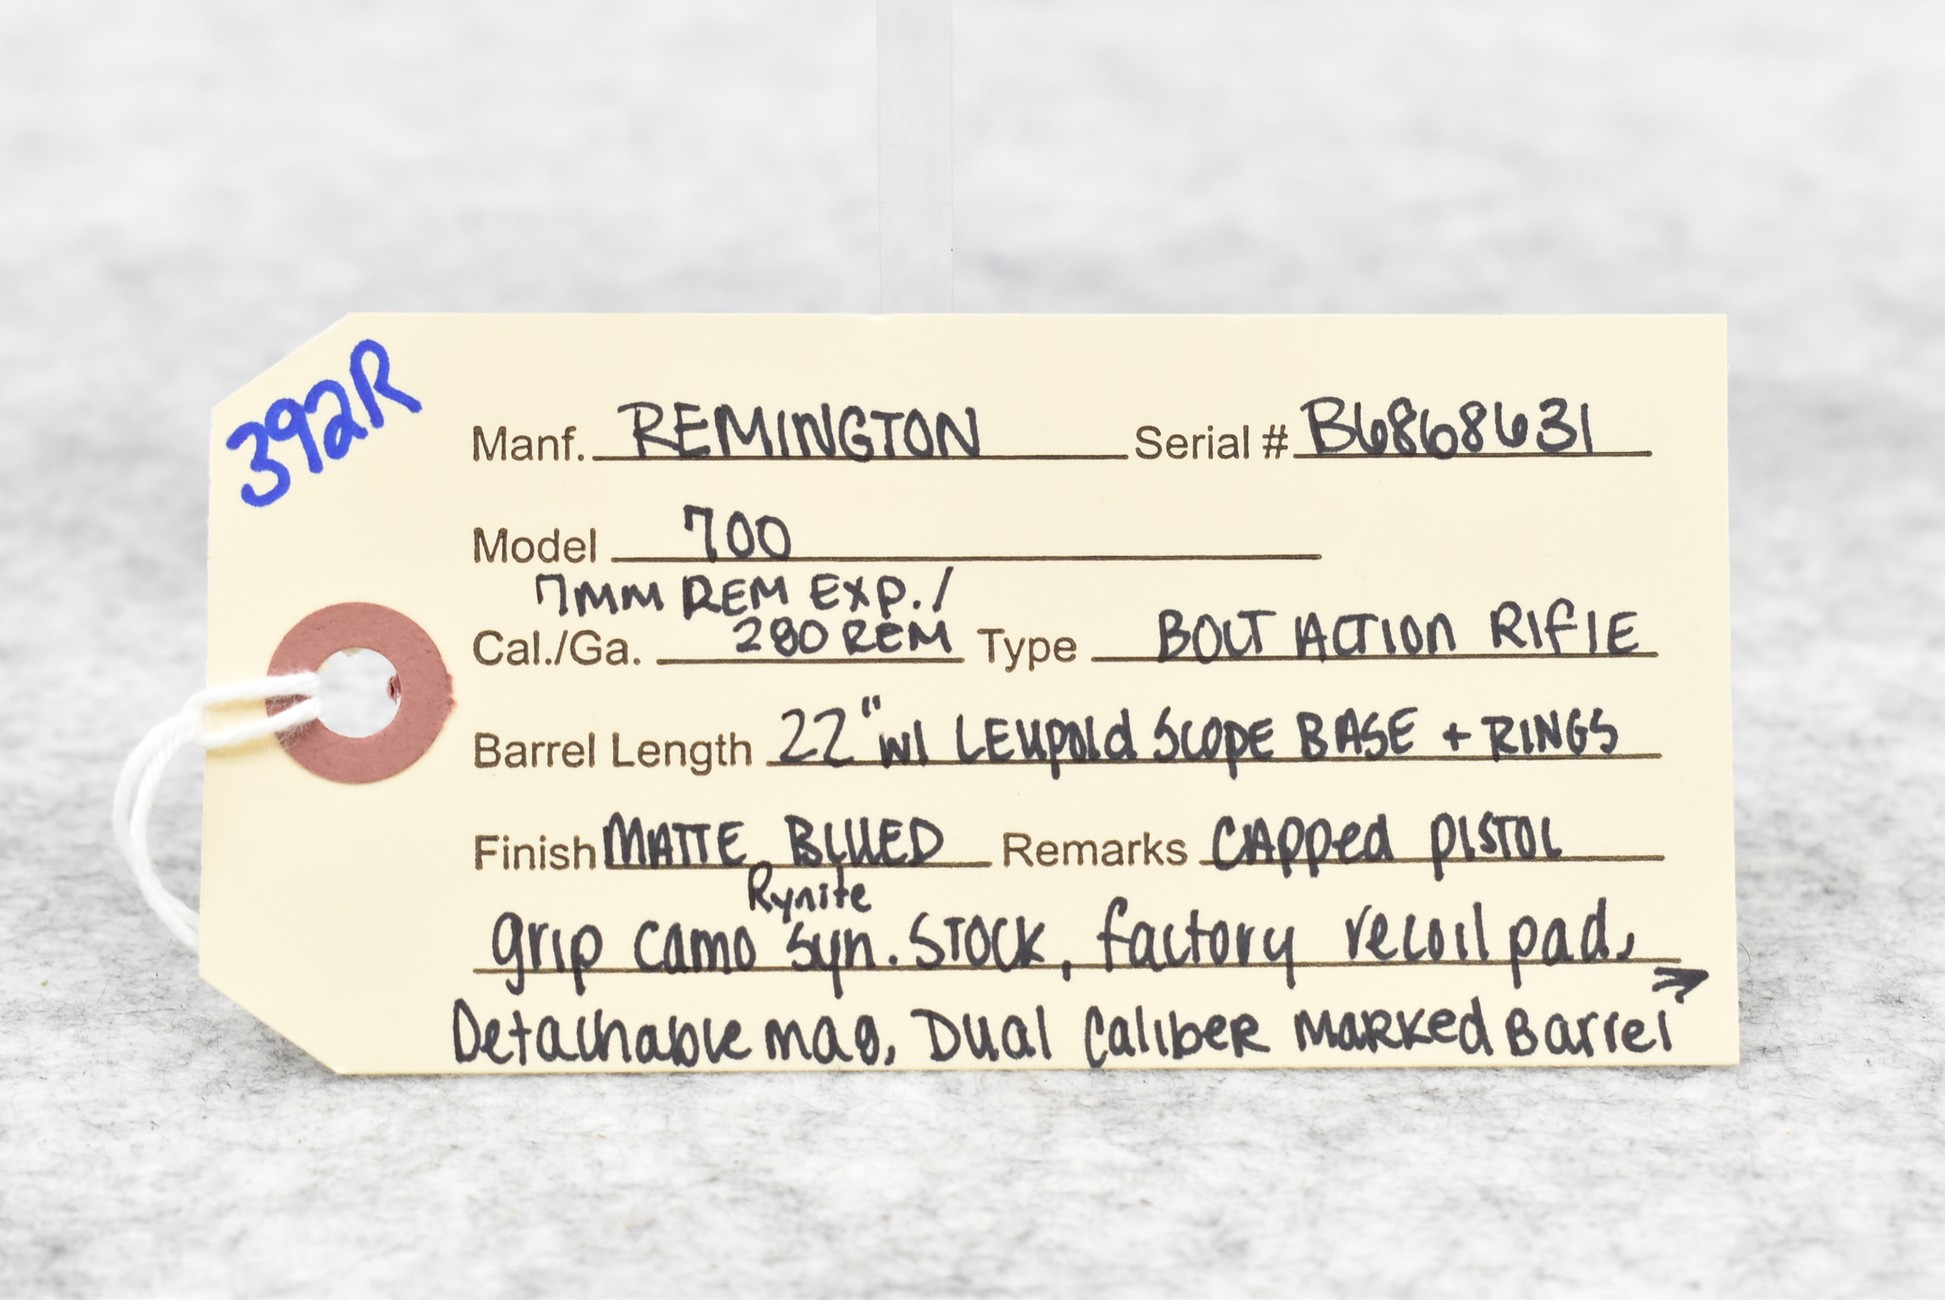 392R
Manf. REMINGTON Serial # B6868631
Model 700
7MM REM EXP./
Cal./Ga. 280 REM Type BOLT ACTION RIFLE
Barrel Length 22" w/ LEUPOLD SCOPE BASE + RINGS
Finish MATTE BLUED Remarks CAPPED PISTOL
Rynite
grip camo syn. STOCK, factory recoil pad,
Detachable mag, Dual Caliber MARKed Barrel →